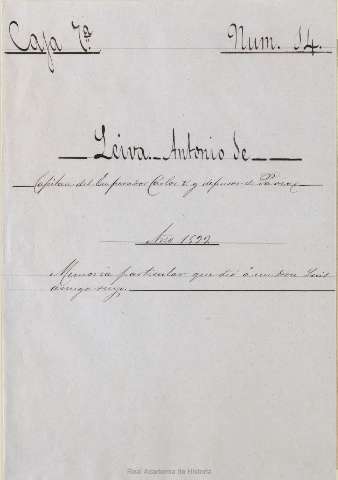 Caja 7ª. Num. 14.
Leiva Antonio de
Capitan del Emperador Carlos V y defensor de Pavia
Año 1522
Memoria particular que dió á un Don Luis
amigo suyo.
Real Academia de Historia